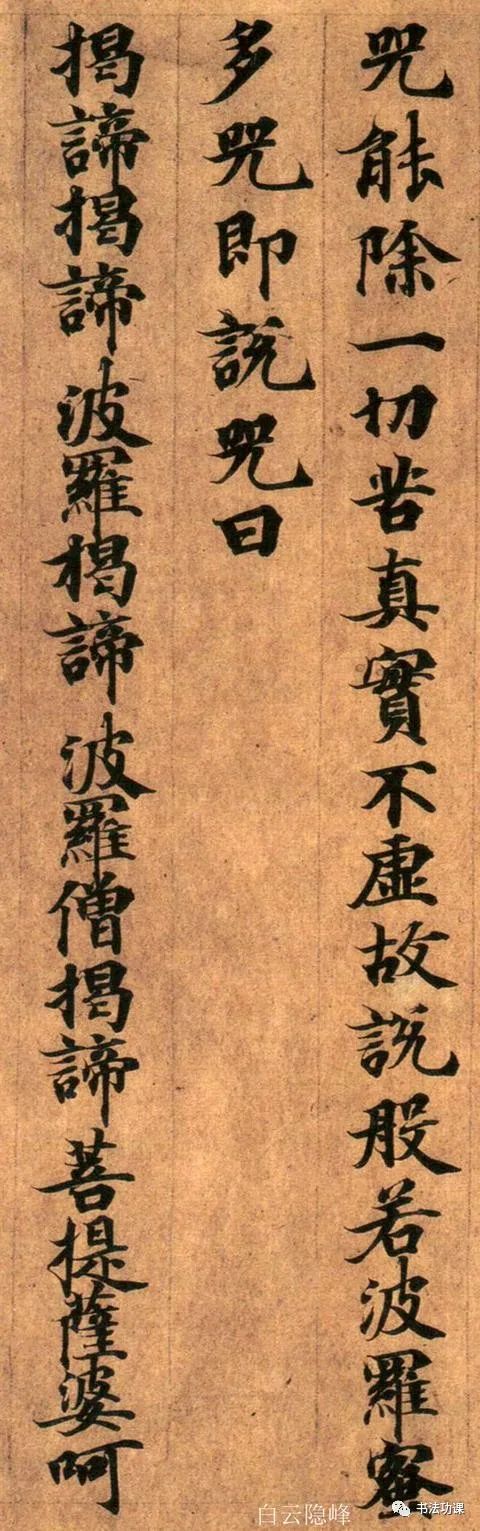 咒能除一切苦真實不虛故説般若波羅蜜
多咒即説咒曰
揭諦揭諦波羅揭諦波羅僧揭諦菩提薩婆呵
白云隐峰
书法功课